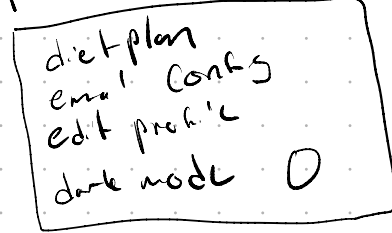 diet plan
email config
edit profile
dark mode